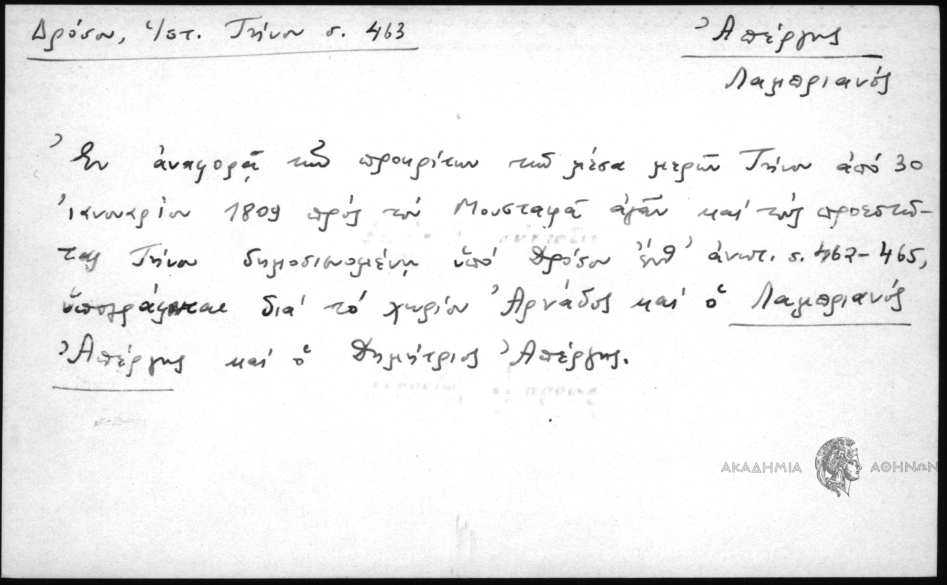 Δρόσου, Ἱστ. Τήνου σ. 463
Ἀπέργης
Λαμπριανός
Ἐν ἀναφορᾷ τῶν προκρίτων τῶν μέσα μερῶν Τήνου ἀπό 30
Ἰανουαρίου 1809 πρός τόν Μουσταφᾶ ἀγᾶν καί τούς προεστῶ-
τας Τήνου δημοσιευομένῃ ὑπό Δρόσου ἔνθ' ἀνωτ. σ. 462-465,
ὑπογράφεται διά τό χωρίον Ἀρνάδος καί ὁ Λαμπριανός
Ἀπέργης καί ὁ Δημήτριος Ἀπέργης.
ΑΚΑΔΗΜΙΑ ΑΘΗΝΩΝ